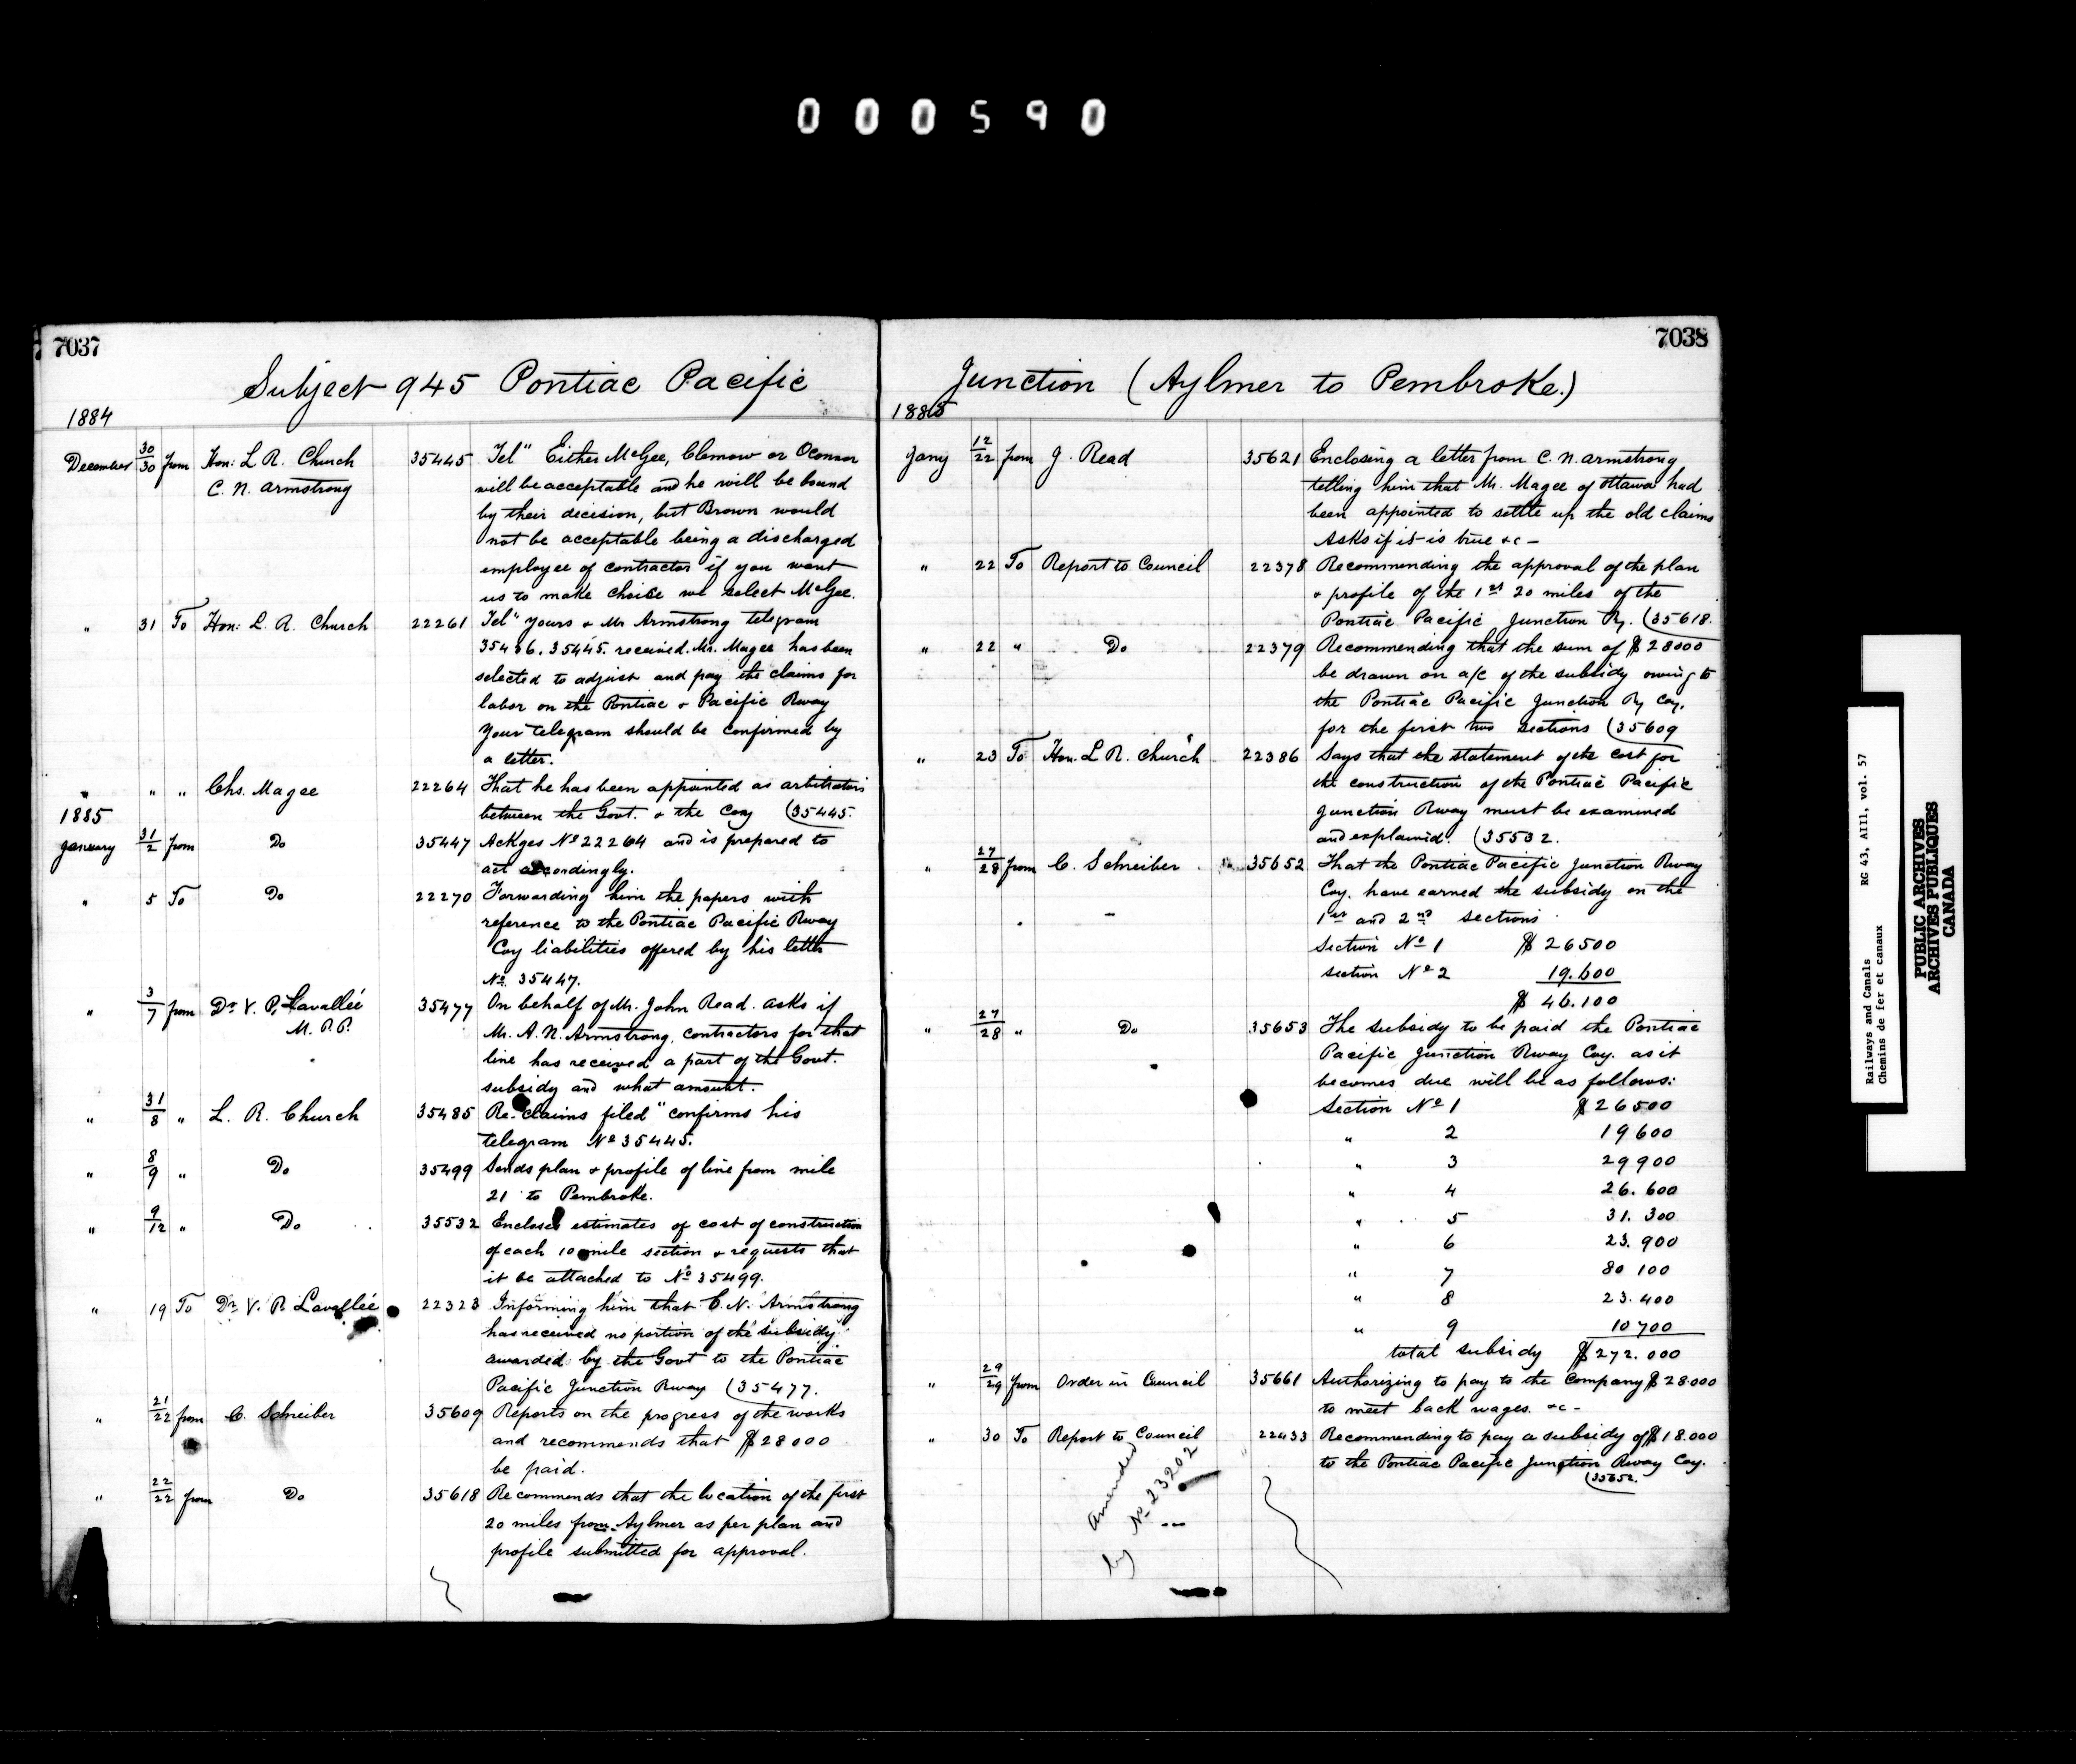 000590
7037
Subject 945 Pontiac Pacific
1884
December 30/30 from Hon: L R. Church 35445 Tel" Either McGee, Clemow or OConnor
C. N. Armstrong will be acceptable and he will be bound
by their decision, but Brown would
not be acceptable being a discharged
employee of contractor if you want
us to make choice we select McGee.
" 31 To Hon: L. R. Church 22261 Tel" yours & Mr Armstrong telegram
35436. 35445. received. Mr. Magee has been
selected to adjust and pay the claims for
labor on the Pontiac & Pacific Rway
Your telegram should be confirmed by
a letter.
" " " Chs. Magee 22264 That he has been appointed as arbitrator
between the Govt. & the Coy (35445.
1885
January 31/2 from Do 35447 Ackges No 22264 and is prepared to
act accordingly.
" 5 To Do 22270 Forwarding him the papers with
reference to the Pontiac Pacific Rway
Coy liabilities offered by his letter
No. 35447.
" 3/7 from Dr. V. P. Lavallée 35477 On behalf of Mr. John Read. asks if
M. P. P. Mr. A. N. Armstrong, contractors for that
line has received a part of the Govt.
subsidy and what amount.
" 31/8 " L. R. Church 35485 Re "claims filed" confirms his
telegram No 35445.
" 8/9 " Do 35499 Sends plan & profile of line from mile
21 to Pembroke.
" 9/12 " Do 35532 Encloses estimates of cost of construction
of each 10 mile section & requests that
it be attached to No 35499.
" 19 To Dr. V. P. Lavallée 22323 Informing him that C. N. Armstrong
has received no portion of the subsidy
awarded by the Govt to the Pontiac
Pacific Junction Rway (35477.
" 21/22 from C. Schreiber 35609 Reports on the progress of the works
and recommends that $28000
be paid.
" 22/22 from Do 35618 Recommends that the location of the first
20 miles from Aylmer as per plan and
profile submitted for approval.
7038
Junction (Aylmer to Pembroke.)
1885
Jany 12/22 from J. Read 35621 Enclosing a letter from C. N. Armstrong
telling him that Mr. Magee of Ottawa had
been appointed to settle up the old claims
Asks if it is true &c -
" 22 To Report to Council 22378 Recommending the approval of the plan
& profile of the 1st 20 miles of the
Pontiac Pacific Junction Ry. (35618.
" 22 " Do 22379 Recommending that the sum of $28000
be drawn on a/c of the subsidy owing to
the Pontiac Pacific Junction Ry Coy,
for the first two sections (35609
" 23 To Hon. L R. Church 22386 Says that the statement of the cost for
the construction of the Pontiac Pacific
Junction Rway must be examined
and explained. (35532.
" 27/28 from C. Schreiber 35652 That the Pontiac Pacific Junction Rway
Coy. have earned the subsidy on the
1st and 2nd sections
Section No 1 $ 26500
section No 2 19.600
$ 46.100
" 27/28 " Do 35653 The subsidy to be paid the Pontiac
Pacific Junction Rway Coy. as it
becomes due will be as follows:
Section No 1 $26500
" 2 19600
" 3 29900
" 4 26.600
" 5 31.300
" 6 23.900
" 7 80 100
" 8 23.400
" 9 10700
total subsidy $272.000
" 29/29 from Order in Council 35661 Authorizing to pay to the Company $28.000
to meet back wages. &c -
" 30 To Report to Council 22433 Recommending to pay a subsidy of $18.000
to the Pontiac Pacific Junction Rway Coy.
(35652.
Amended
by No 23202
Railways and Canals RG 43, AIII, vol. 57
Chemins de fer et canaux
PUBLIC ARCHIVES
ARCHIVES PUBLIQUES
CANADA